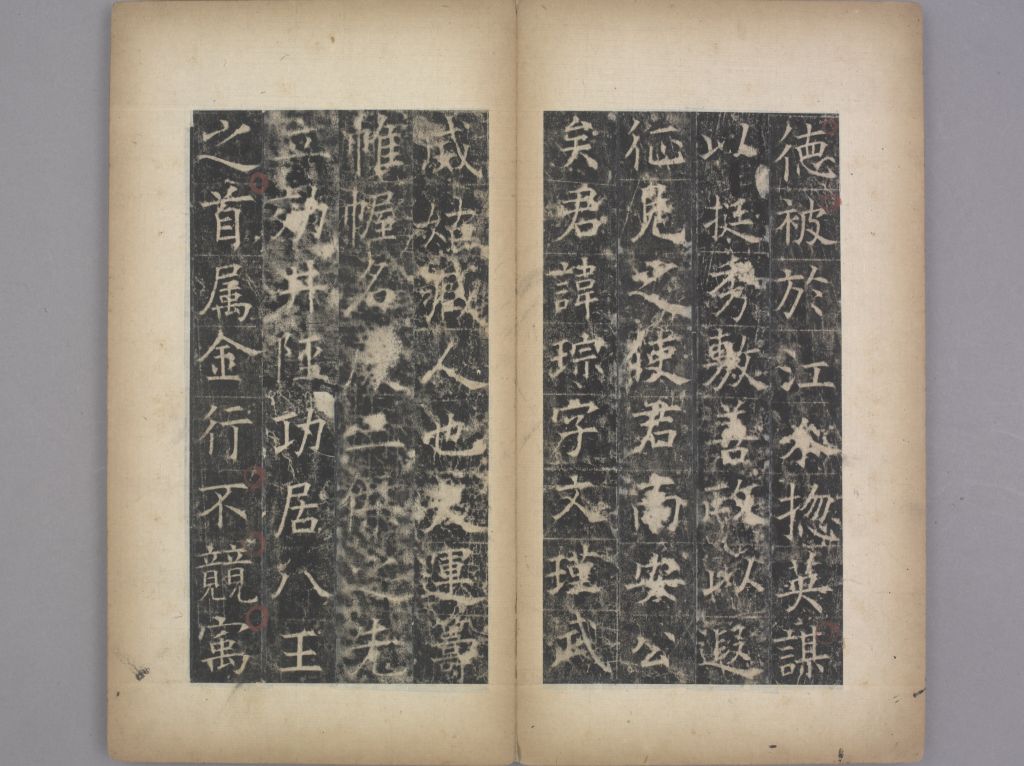 徳被於江水揔英謀
以挺秀敷善政以遐
征見之使君南安公
矣君諱琮字文瑾武
威姑臧人也運籌
帷幄名二之先
立効井陘功居八王
之首属金行不競寓